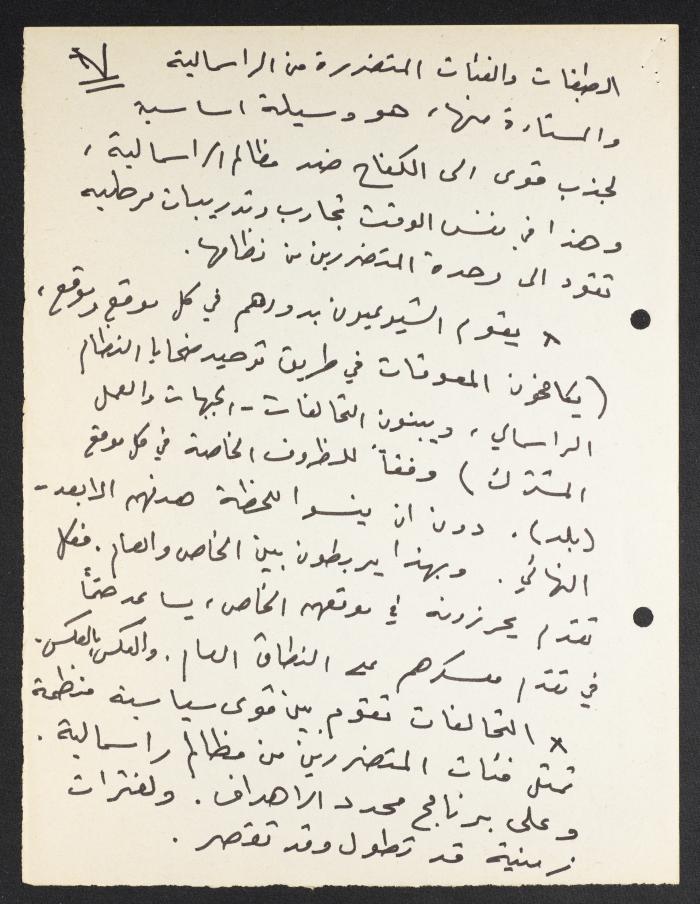 الطبقات والفئات المتضررة من الراسمالية
والمستاءة منها، هو وسيلة اساسية
لجذب قوى الى الكفاح ضد مظالم الراسمالية،
وهذا في نفس الوقت تجارب وتدريبات مرحليه
تقود الى وحدة المتضررين من نظامها.
× يقوم الشيوعيون بدورهم في كل موقع وموقع،
(يكافحون المعوقات في طريق توحيد ضحايا النظام
الراسمالي، ويبنون التحالفات - الجبهات والعمل
المشترك) وفقاً للظروف الخاصة في كل موقع
(بلد). دون ان ينسوا للحظة هدفهم الابعد -
النهائي. وبهذا يربطون بين الخاص والعام. فكل
تقدم يحرزونه في موقعهم الخاص، يساعد حتماً
في تقدم معسكرهم على النطاق العام. والعكس بالعكس.
× التحالفات تقوم بين قوى سياسية منظمة
تمثل فئات المتضررين من مظالم راسمالية.
وعلى برنامج محدد الاهداف. ولفترات
زمنية قد تطول وقد تقصر.